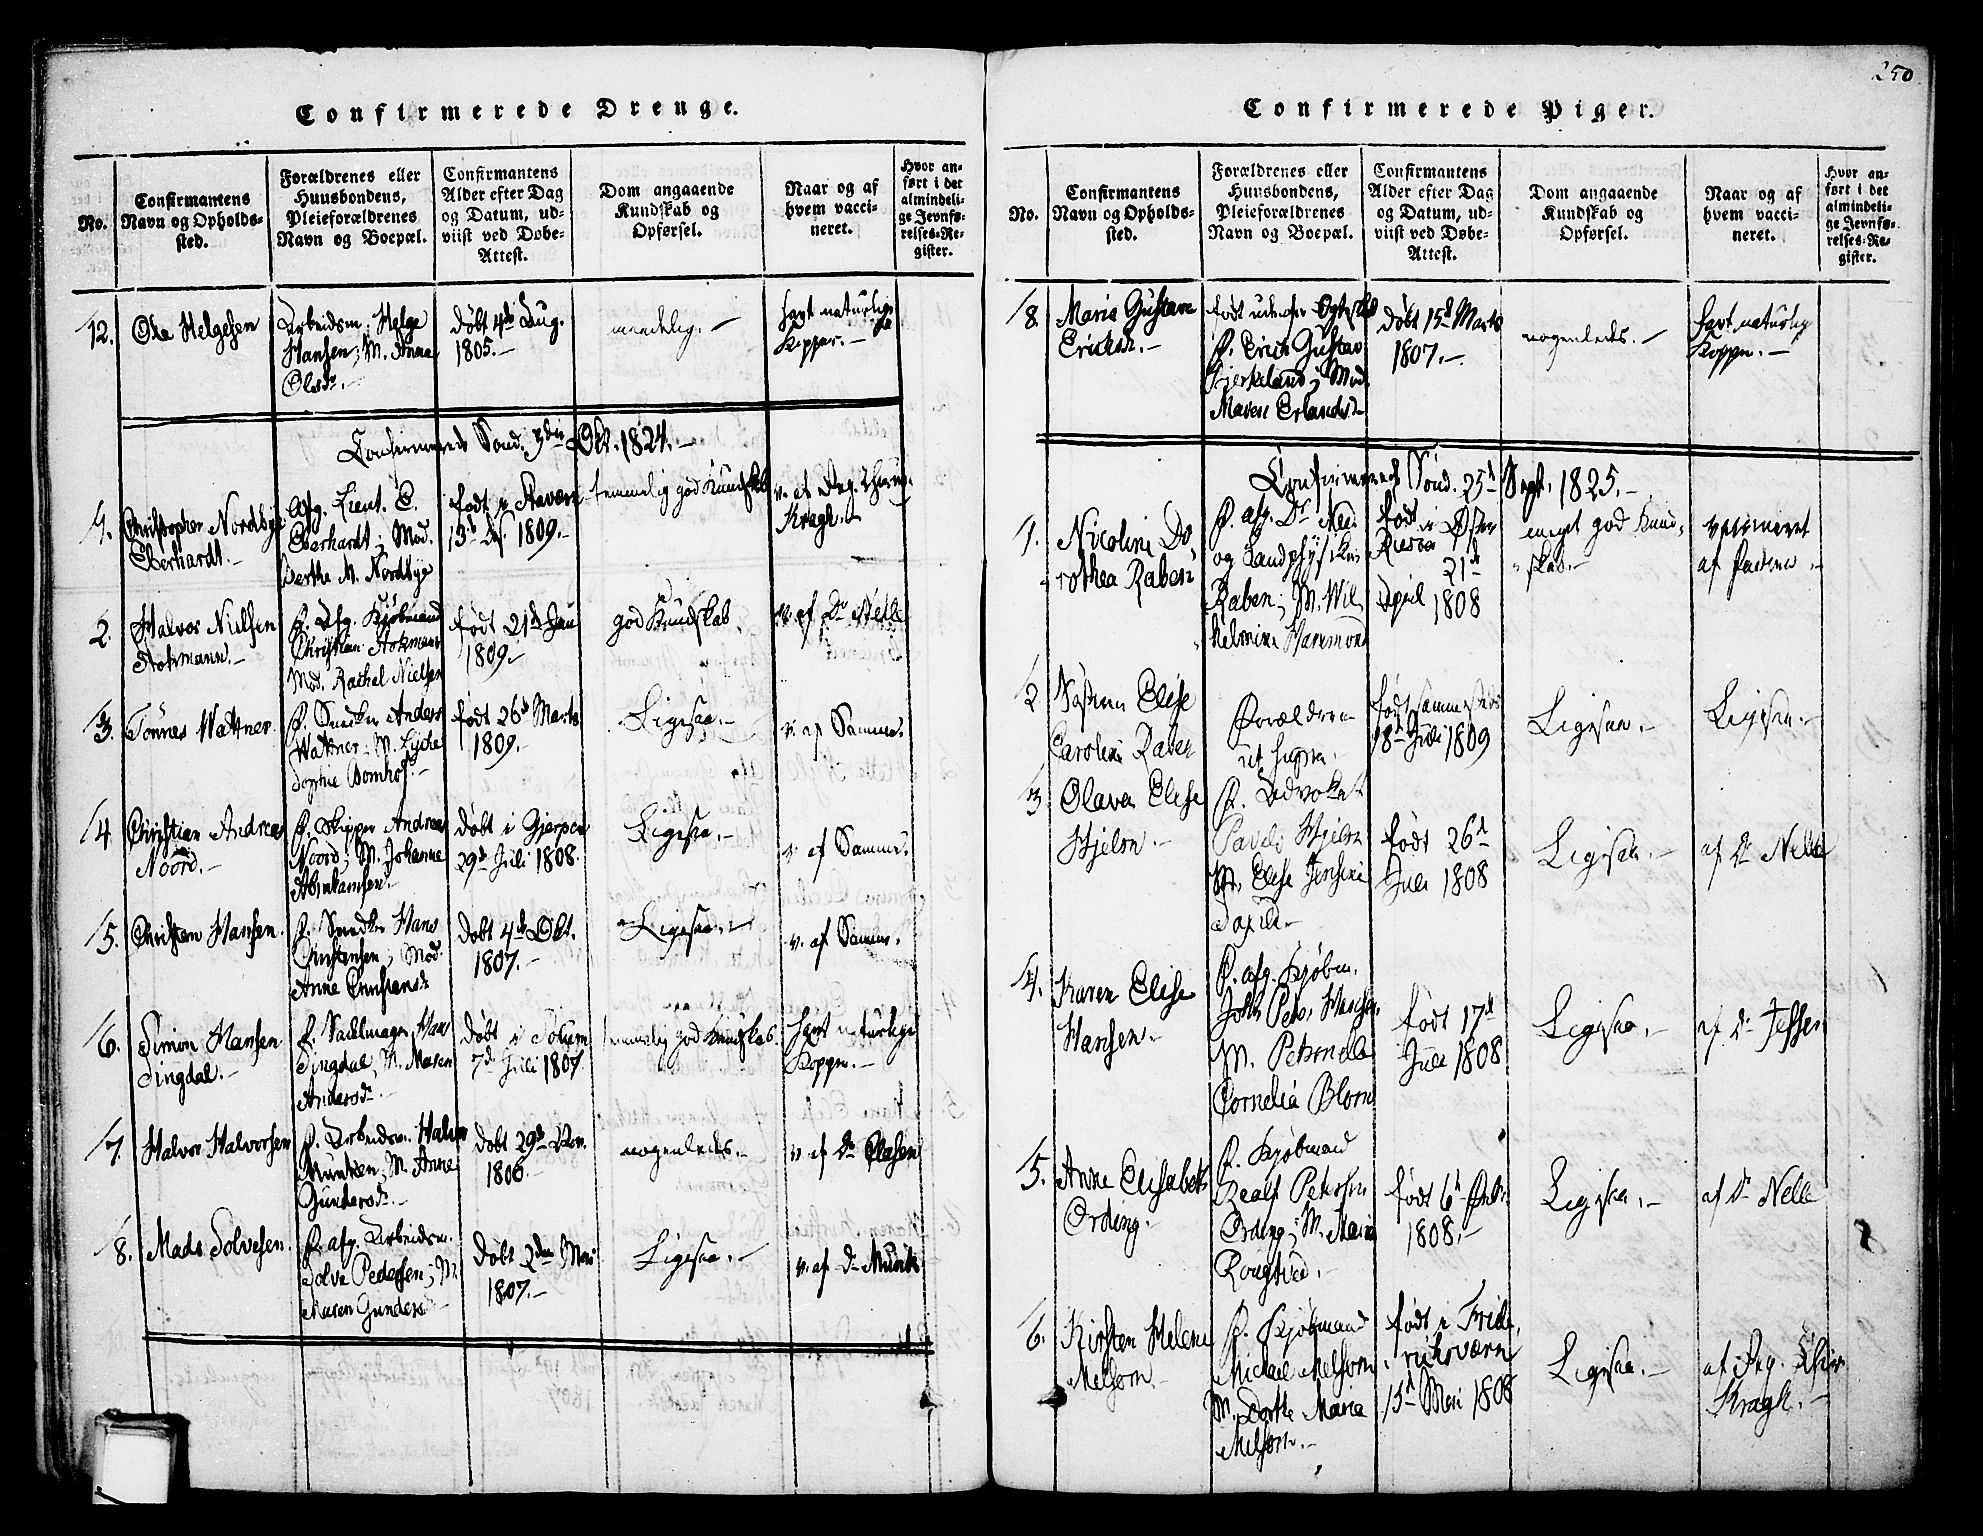 250
Confirmerede Drenge.
No.
Confirmantens
Navn og Opholds-
sted.
Forældrenes eller
Huusbondens,
Pleieforældrenes
Navn og Boepæl.
Confirmantens
Alder efter Dag
og Datum, ud-
viist ved Døbe-
Attest.
Dom angaaende
Kundskab og
Opførsel.
Naar og af
hvem vacci-
neret.
Hvor an-
ført i det
almindeli-
ge Jevnfø-
relses-Re-
gister.
12.
Ole Helgesen
Arbeidsm. Helge
Hansen; M. Anne
Olsdr.
døbt 4de Aug.
1805.-
maadelig.-
havt naturlige
Kopper.-
Confirmerede Sønd. 3die Okt. 1824.-
1.
Christopher Nordbye
Eberhardt.-
Afg. Lieut. C.
Eberhardt; Mod.
Berthe M. Nordbye
født i Stavern
13de Dec. 1809.-
temmelig god Kundskab
v. af Reg. Chirur.
Kragh.-
2.
Halvor Nielsen
Homann.-
F. Afg. Kjøbmand
Christian Homann
Mod. Rachel Nielsen
født 21de Jan
1809.-
god Kundskab.
v. af Dr. Nelle
3.
Tønnes Wattner
F. Snedker Anders
Wattner; M. Lyche
Sophie Bomhof.-
født 26de Marts
1809.-
Ligesaa.-
v. af Samme.
4
Christian Andreas
Noord.-
F. Skipper Andreas
Noord; M. Johanne
Abrahamsen.
døbt i Gjerpen
29de Juli 1808.
Ligesaa.-
v. af Samme.
5.
Christen Hansen.
F. Snedker Hans
Christensen; Mod.
Anne Christensdr
døbt 4de Okt.
1807.-
Ligesaa.-
v. af Samme.
6.
Simon Hansen
Tingdal.-
F. Sadelmager Hans
Tingdal, M. Maren
Andersdr.-
døbt i Solum
7de Juli 1807.
temmelig god Kundskab.
havt naturlige
Kopper.-
7.
Halvor Halvorsen
F. Arbeidsm. Halvor
M. Anne
Gundersdr.-
døbt 29de Nov.
1806.-
nogenledes.-
v. af Dr. Clasen
8.
Mads Solvesen.
F. afg. Arbeidsm.
Solve Pedersen; M.
Maren Gundersdr
døbt 2den Mai
1807.-
Ligesaa.-
v. af Dr. Munk
Confirmerede Piger.
No.
Confirmantens
Navn og Opholds-
sted.
Forældrenes eller
Huusbondens,
Pleieforældrenes
Navn og Boepæl.
Confirmantens
Alder efter Dag
og Datum, ud-
viist ved Døbe-
Attest.
Dom angaaende
Kundskab og
Opførsel.
Naar og af
hvem vacci-
neret.
Hvor an-
ført i det
almindeli-
ge Jevnfø-
relses-Re-
gister.
18
Maria Gustava
Ericksdr.-
født udenfor Egteskab
F. Erich Gustav
Bjerkeland; Mod.
Maren Erlandsdr
døbt 15de Marts
1807.-
nogenledes.-
havt naturlig
Kopper.-
Confirmerede Sønd. 25de Sept. 1825.-
1.
Nicoline Do-
rothea Raben
F. afg. Dr. Med.
og Landphysikus
Raben; M. Wil-
helmine Hammond
født i Øster
Riisøer
21de
April 1808
meget god Kund-
skab.-
vaccineret
af Faderen.-
2
Elise
Caroline Raben
Forældrene
ut supra.
født sammesteds
18de Juli 1809
Ligesaa.-
Ligesaa.-
3
Olava Elise
Hjelm.-
F. Advokat
Pavels Hjelm
M. Elise Jensine
født 26de
Juli 1808
Ligesaa.-
af Dr. Nelle
4.
Karen Elise
Hansen.-
F. afg. Kjøbm.
M. Petronelle
Cornelia Blom
født 17de
Juli 1808
Ligesaa.-
af Dr. Jessen
5.
Anne Elisabeth
Ording.
F. Kjøbmand
Realf Petersen
Ording; M. Maria
Rougtved.
født 6te
1808.-
Ligesaa.-
af Dr. Nelle
6.
Kirsten Helene
Melsom.-
F. Kjøbmand
Michael Melsom
M. Dorthe Maria
Melsom.-
født i Fride-
richsværn
15de Mai 1808
Ligesaa.-
af Reg. Chir.
Kragh.-